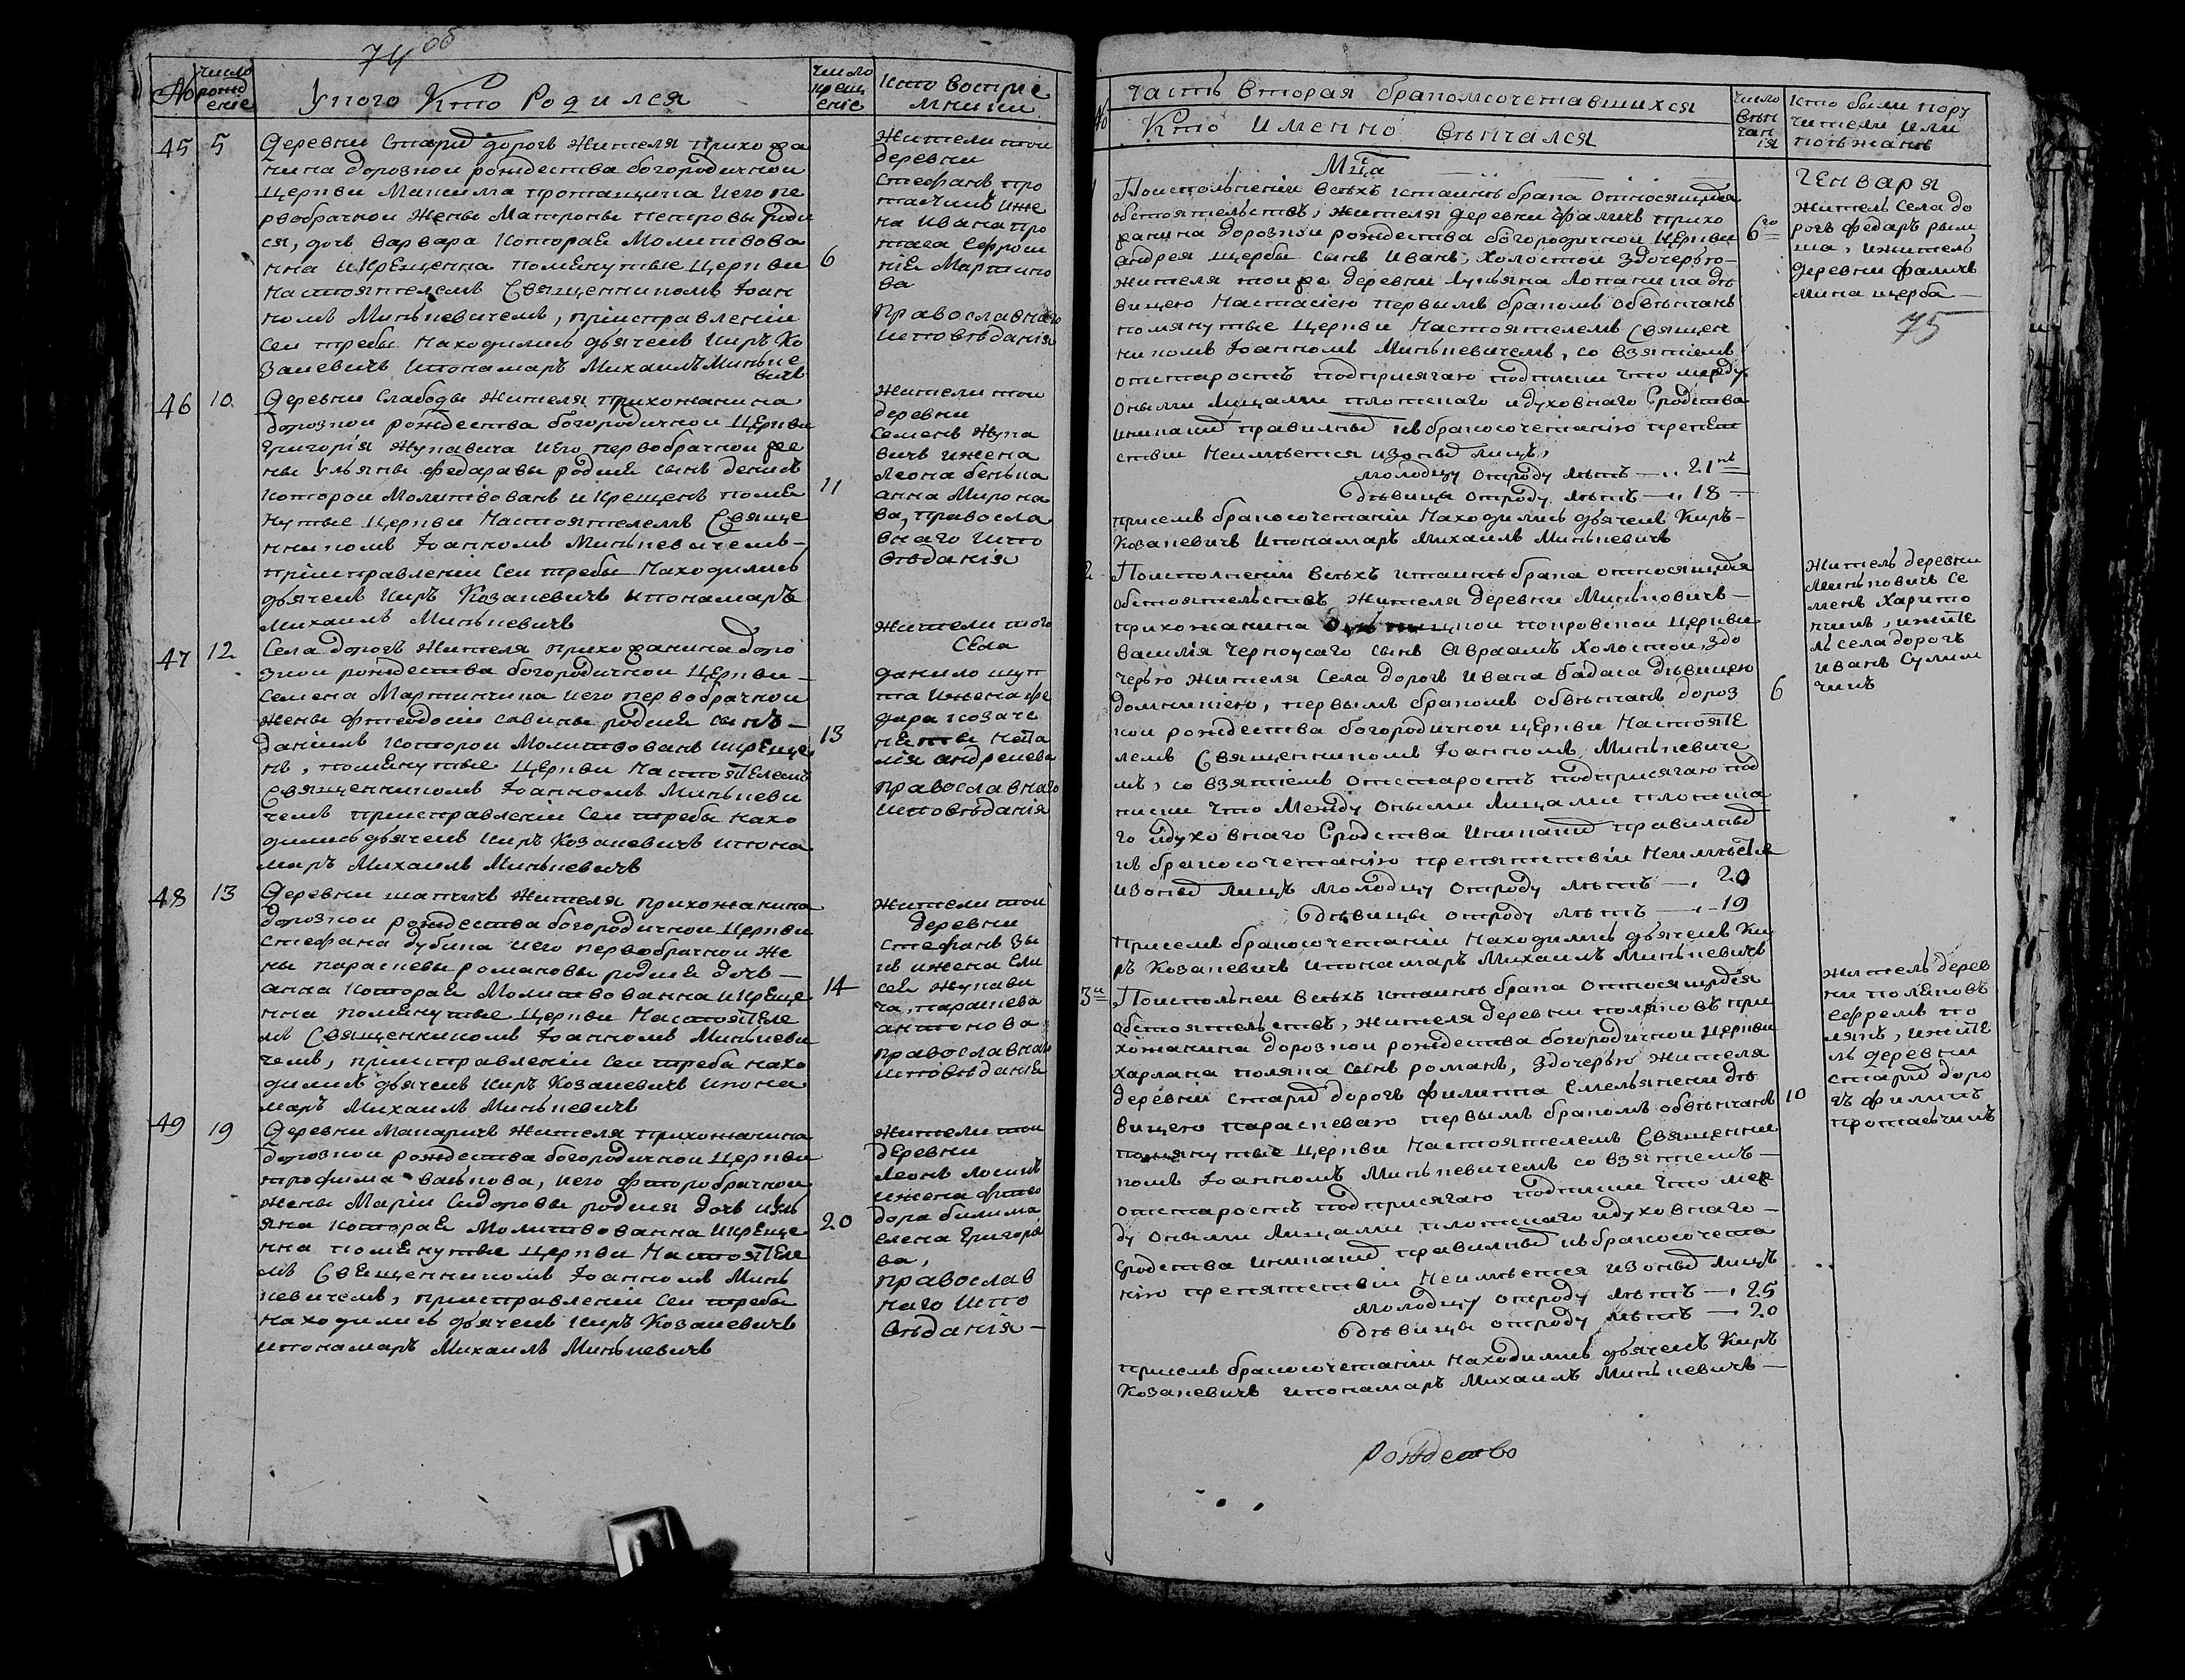 74 об
№
число рожд ение
У кого Кто Родился
число крещ ение
Кто восприе
мники
45 5
Деревни Старих дорогъ Жителя прихожа
нина дорозкои рождества богородичнои
Церкви Максима протащика иего пе
рвобрачнои Жены Матроны петровы роди
ся, дочь Варвара Котораѧ Молитвова
нна иКрѣщенна помѧнутые Церкви
Настоятелемъ Священникомъ Іоан
номъ Минькевичемъ, приисправленіи
сеи требы Находились дьячекъ Киръ Ко
закевичъ ипонамаръ Михаилъ Минькe
вичъ
6
Жители тои
деревни
Стефанъ про
тасчикъ иже
на Ивана про
таса Ефроси
ніѧ Мартино
ва
Православнаго
исповѣданія
46 10
Деревни Слабоды Жителя прихожанина
дорозкои рождества богородичнои Церкви
Григорія Жукавича иего первобрачнои же
ны Ульяны Федаравы родилсѧ сынъ денисъ
Которои Молитвованъ иКрещенъ помѧ
нутые Церкви Настоятелемъ Свяще
нникомъ Іоанномъ Минькевичемъ —
приисправлении сеи требы Находились
дьячекъ Киръ Козакевичъ ипонамаръ
Михаилъ Минькевичъ
11
Жители тои
деревни
Семенъ Жука
вичъ ижена
Леона бенька
анна Мирона
ва, правосла
внаго испо
вѣданія
47 12
Села дорогъ Жителя прихожанина доро
зкои рождества богородичнои Церкви —
Семена Мартинчика иего первобрачнои
жены Фтеодосіи савины родилсѧ сынъ —
даніилъ Которои Молитвованъ икрѣще
нъ, помѧнутые Церкви Настоятелемъ
Священникомъ Іоанномъ Минькеви
чемъ приисправленіи сеи требы нахо
дились дьячекъ Киръ Козакевичъ ипона
маръ Михаилъ Минькевичъ
13
Жители того
Села
данило шуп
та ижена фе
дара козаче
ната
лія андреева
православнаго
исповѣданія
48 13
Деревни шапчичъ Жителя прихожанина
дорозкои рождества богородичнои Церкви
Стефана дубика иего первобрачнои же
ны параскевы романовы родилсѧ дочь —
анна Котораѧ Молитвованна икреще
нна помѧнутые Церкви Настоятеле
мъ Священникомъ Іоанномъ Минькеви
чемъ, приисправленіи сеи треба нахо
дились дьячекъ Киръ Козакевичъ ипона
маръ Михаилъ Минькевичъ
14
Жители тои
деревни
Стефанъ Зы
къ ижена Ели
сеѧ Жукави
ча, параскева
антонова
православнаго
исповѣданіѧ
49 19
Деревни Макаричъ Жителя прихожанина
дорозкои рождества богородичнои Церкви
трофима Васькова, иего фторобрачнои
жены Маріи Сидоровы родися дочь Иль
яна Котораѧ Молитвованна икрѣще
нна помѧнутые Церкви Настоятеле
мъ Свѧщенникомъ Іоанномъ Минь
кевичемъ, приисправленіи сеи требы
находились дьячекъ Киръ Козакевичъ
ипонамаръ Михаилъ Минькевичъ
20
Жители тои
деревни
Леонъ Лосикъ
ижена фтео
дора билика
елена Григорѣ
ва,
православ
наго испо
вѣданія —
№
часть вторая бракомсочетавшихся
Кто именно вѣнчался
число вѣн чан ія
Кто были пору
чители или
потъжанъ
Мца
Генваря
75
1
Поисполненіи всѣхъ ктаинѣ брака относящихся
обстоятельствъ, жителя деревни Фаличъ прихо
жанина дорозкои рождества богородичнои Церкви
андрея щербы сынъ Иванъ, Холостои здочерью —
жителя тои же деревни Лукьяна Лопаника дѣ
вицею Настасією первымъ бракомъ обвѣнчанъ
помянутые Церкви Настоятелемъ Священ
никомъ Іоанномъ Минькевичемъ, со взятіемъ
отстаростъ подприсягаю подписки что между
оными Лицами плотскаго идуховнаго Сродства
иникаких правилных къ бракосочетанію препят
ствіи Неимѣется изоных лицъ,
молодцу отроду лѣтъ — 21
дѣвицы отроду лѣтъ — 18 —
присемъ бракосочетаніи Находились дьячекъ Киръ —
Козакевичъ ипонамаръ Михаилъ Минькевичъ
6го
Житель Села до
рогъ Федаръ рым
ша, ижитель
деревни Фаличъ
Мина щерба —
2
Поисполненіи всѣхъ ктаинѣ брака относящихся
обстоятельствъ Жителя деревни Миньковичъ —
прихожанина покровскои церкви
Василія Черноусаго сынъ Авраамъ Холостои, здо
черью жителя Села дорогъ Ивана бадака дѣвицею
домникією, первымъ бракомъ обвѣнчанъ дороз
кои рождества богородичнои церкви Настояте
лемъ Священникомъ Іоанномъ Минькевиче
мъ, со взятіемъ отстаростъ подприсягаю под
писки что Между оными Лицами плотска
го идуховнаго Сродства иникаких правилных
къ бракосочетанію препятствіи Неимѣется
изоных лицъ молодцу отроду лѣтъ — 20
дѣвицы отроду лѣтъ — 19
присемъ бракосочетаніи Находились дьячекъ Ки
ръ Козакевичъ ипонамаръ Михаилъ Минькевичъ
6
Житель деревни
Миньковичъ Се
менъ Харито
нчикъ, ижите
ль села дорогъ
иванъ Сулим
чикъ
3и
Поисполнеи всѣхъ ктаинѣ брака относящихся
обстоятельствъ, жителя деревни поляковъ при
хожанина дорозкои рождества богородичнои церкви
харлана поляка сынъ романъ, здочерью жителя
деревніи старих дорогъ филиппа Емельянски дѣ
вицею параскевою первымъ бракомъ обвѣнчанъ
помянутые Церкви Настоятелемъ Священни
комъ Іоанномъ Минькевичемъ со взятіемъ —
отстаростъ подприсягаю подписки что меж
ду оными Лицами плотскаго идуховнаго —
сродства иникаких правилных къбракосочета
нію препятствіи Неимѣется изоных лицъ
молодцу отроду лѣтъ — 25
дѣвицы отроду лѣтъ — 20
присемъ бракосочетаніи находились дьячекъ Киръ
Козакевичъ ипонамаръ Михаилъ Минькевичъ —
10
житель дерев
ни поляковъ
Ефремъ по
лякъ, ижите
ль деревни
старих доро
гъ филипъ
протасчикъ
рождество